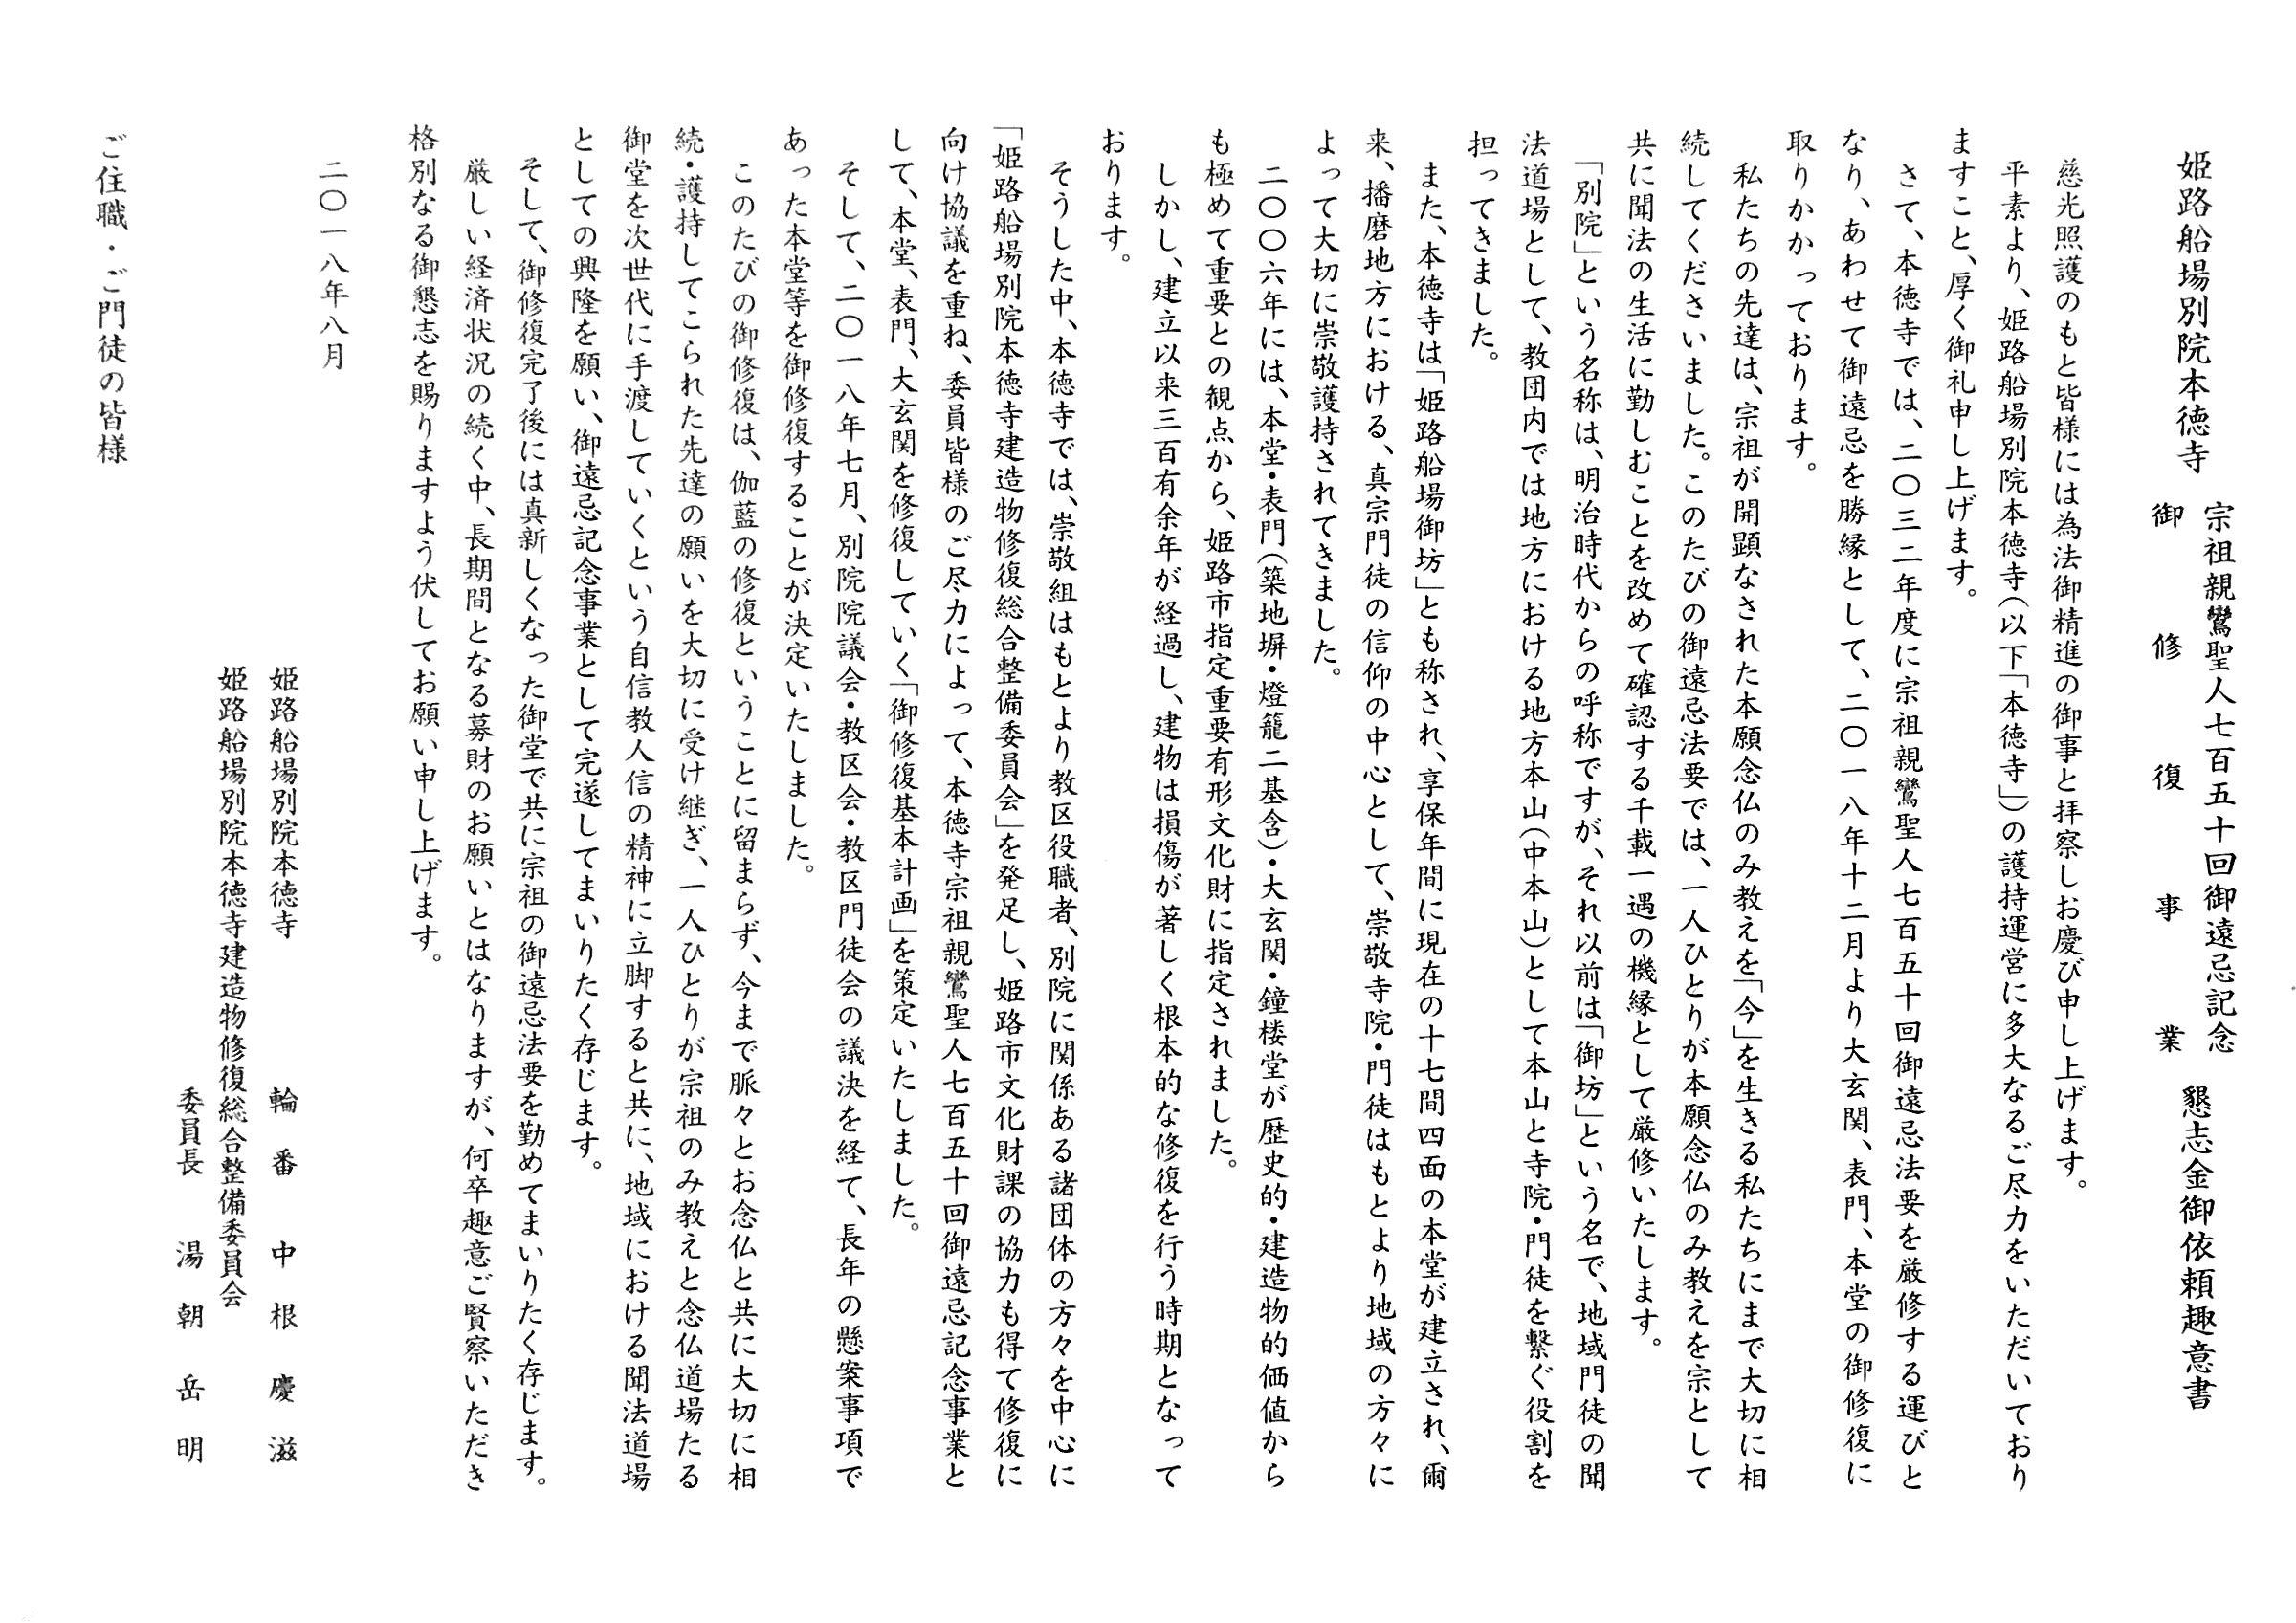 姫路船場別院本徳寺 宗祖親鸞聖人七百五十回御遠忌記念 御修復事業 懇志金御依頼趣意書
慈光照護のもと皆様には為法御精進の御事と拝察しお慶び申し上げます。
平素より、姫路船場別院本徳寺（以下「本徳寺」）の護持運営に多大なるご尽力をいただいており
ますこと、厚く御礼申し上げます。
さて、本徳寺では、二〇三二年度に宗祖親鸞聖人七百五十回御遠忌法要を厳修する運びと
なり、あわせて御遠忌を勝縁として、二〇一八年十二月より大玄関、表門、本堂の御修復に
取りかかっております。
私たちの先達は、宗祖が開顕なされた本願念仏のみ教えを「今」を生きる私たちにまで大切に相
続してくださいました。このたびの御遠忌法要では、一人ひとりが本願念仏のみ教えを宗として
共に聞法の生活に勤しむことを改めて確認する千載一遇の機縁として厳修いたします。
「別院」という名称は、明治時代からの呼称ですが、それ以前は「御坊」という名で、地域門徒の聞
法道場として、教団内では地方における地方本山（中本山）として本山と寺院・門徒を繋ぐ役割を
担ってきました。
また、本徳寺は「姫路船場御坊」とも称され、享保年間に現在の十七間四面の本堂が建立され、爾
来、播磨地方における、真宗門徒の信仰の中心として、崇敬寺院・門徒はもとより地域の方々に
よって大切に崇敬護持されてきました。
二〇〇六年には、本堂・表門（築地塀・燈籠二基含）・大玄関・鐘楼堂が歴史的・建造物的価値から
も極めて重要との観点から、姫路市指定重要有形文化財に指定されました。
しかし、建立以来三百有余年が経過し、建物は損傷が著しく根本的な修復を行う時期となって
おります。
そうした中、本徳寺では、崇敬組はもとより教区役職者、別院に関係ある諸団体の方々を中心に
「姫路船場別院本徳寺建造物修復総合整備委員会」を発足し、姫路市文化財課の協力も得て修復に
向け協議を重ね、委員皆様のご尽力によって、本徳寺宗祖親鸞聖人七百五十回御遠忌記念事業と
して、本堂、表門、大玄関を修復していく「御修復基本計画」を策定いたしました。
そして、二〇一八年七月、別院院議会・教区会・教区門徒会の議決を経て、長年の懸案事項で
あった本堂等を御修復することが決定いたしました。
このたびの御修復は、伽藍の修復ということに留まらず、今まで脈々とお念仏と共に大切に相
続・護持してこられた先達の願いを大切に受け継ぎ、一人ひとりが宗祖のみ教えと念仏道場たる
御堂を次世代に手渡していくという自信教人信の精神に立脚すると共に、地域における聞法道場
としての興隆を願い、御遠忌記念事業として完遂してまいりたく存じます。
そして、御修復完了後には真新しくなった御堂で共に宗祖の御遠忌法要を勤めてまいりたく存じます。
厳しい経済状況の続く中、長期間となる募財のお願いとはなりますが、何卒趣意ご賢察いただき
格別なる御懇志を賜りますよう伏してお願い申し上げます。
二〇一八年八月
姫路船場別院本徳寺 輪番 中根慶滋
姫路船場別院本徳寺建造物修復総合整備委員会
委員長 湯朝岳明
ご住職・ご門徒の皆様